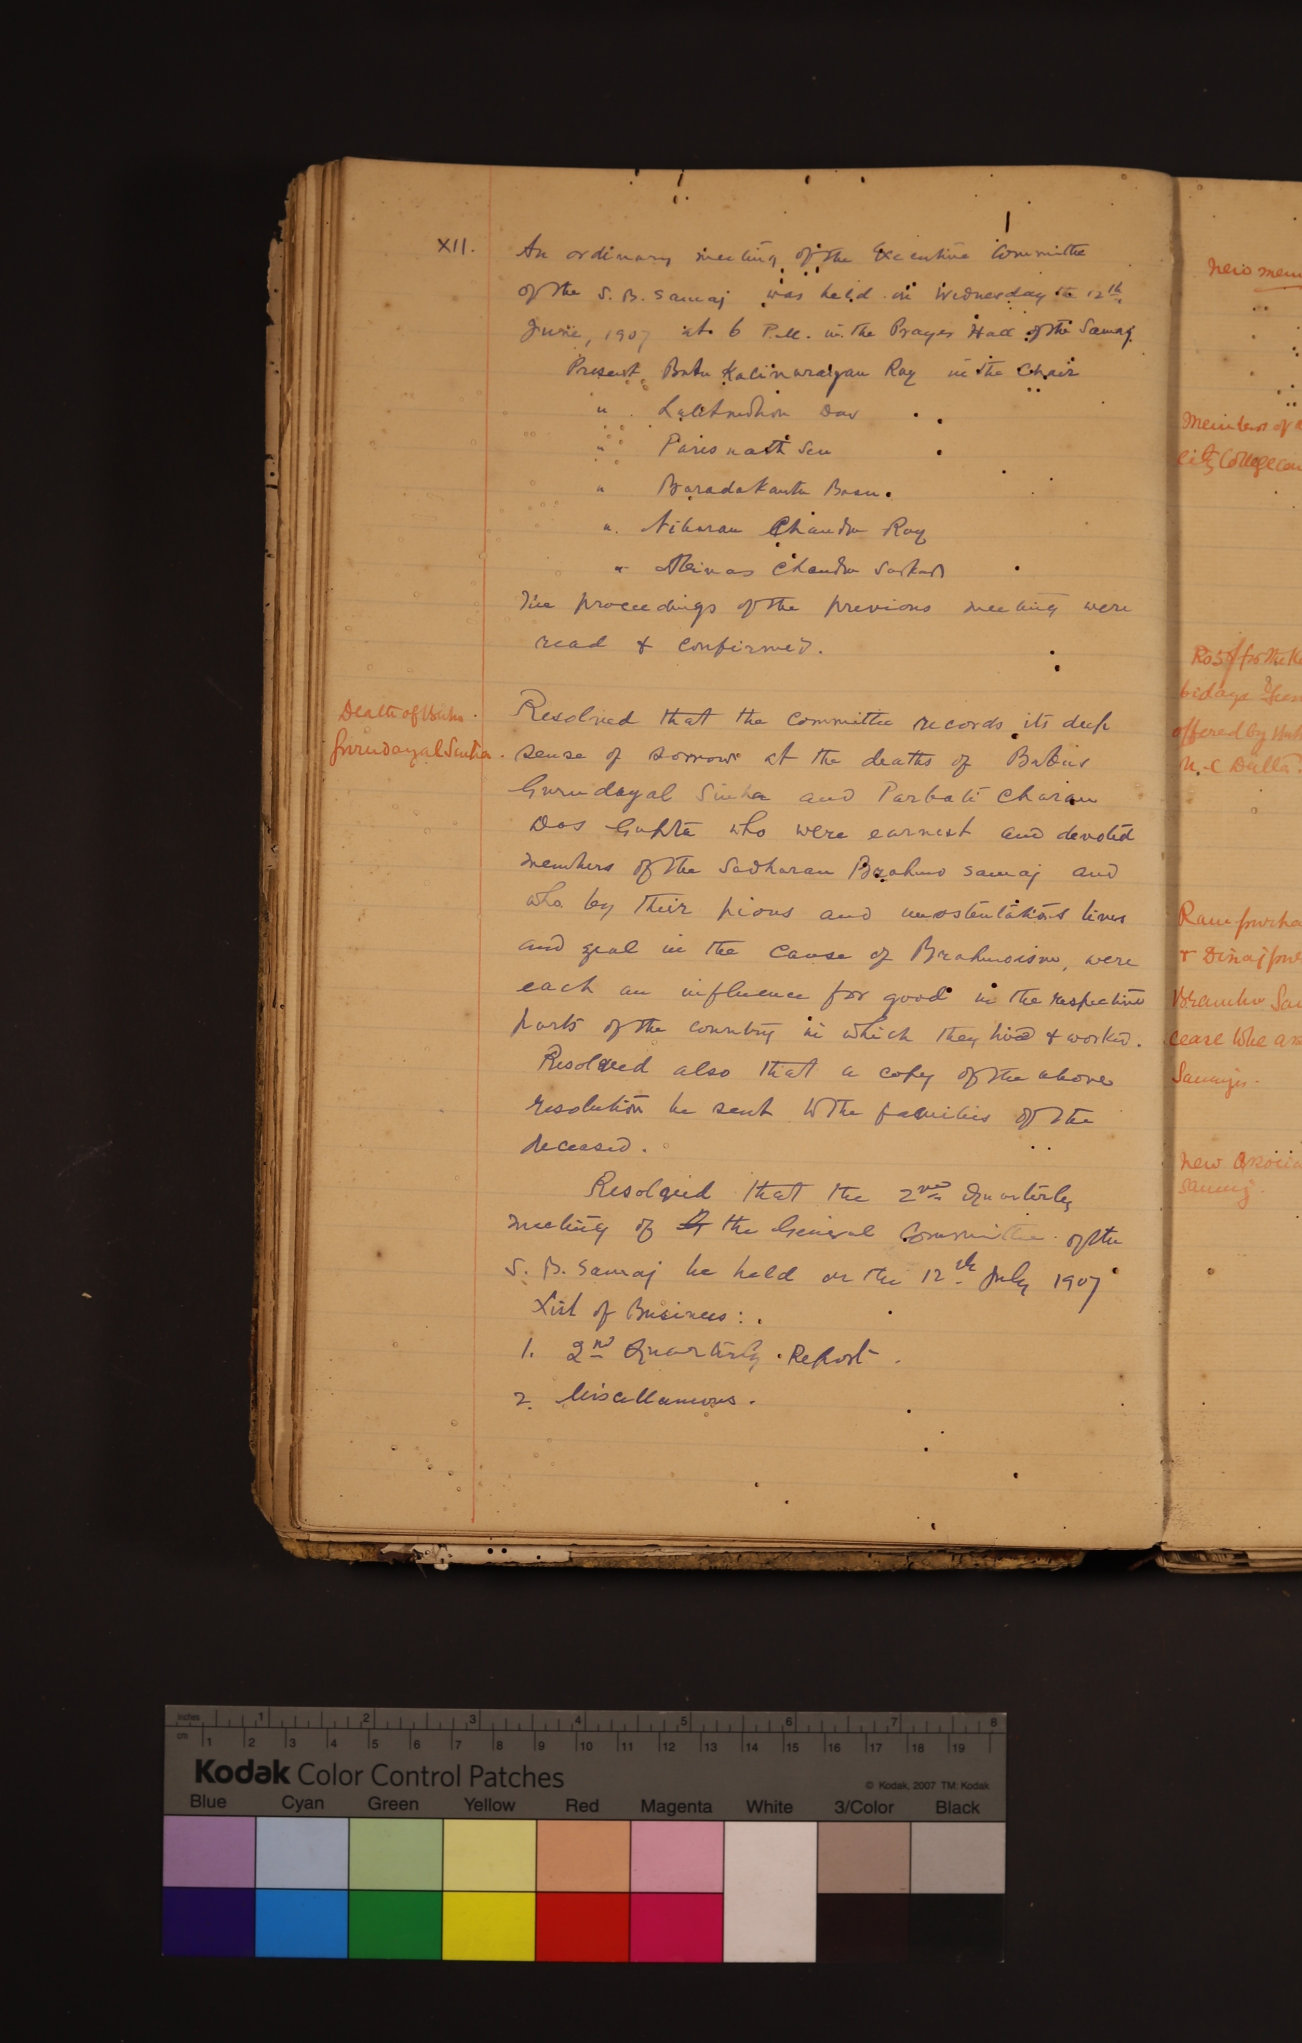 XII.
An ordinary meeting of the Executive Committee
of the S. B. Samaj was held on Wednesday the 12th
June, 1907 at 6 P.M. in the Prayer Hall of the Samaj
Present Babu Kalinarayan Ray in the Chair
" Lalitmohon Das
" Paresnath Sen
" Baradakanta Basu.
" Nibaran Chandra Ray
" Abinas Chandra Sarkar
The proceedings of the previous meeting were
read & confirmed.
Death of Babu
Gurudayal Sinha.
Resolved that the committee records its deep
sense of sorrow at the deaths of Babus
Gurudayal Sinha and Parbati Charan
Das Gupta who were earnest and devoted
members of the Sadharan Brahmo Samaj and
who by their pious and unostentatious lives
and zeal in the cause of Brahmoism, were
each an influence for good in the respective
parts of the country in which they lived & worked.
Resolved also that a copy of the above
resolution be sent to the families of the
deceased.
Resolved that the 2nd Quarterly
meeting of the General Committee of the
S. B. Samaj be held on the 12th July 1907
List of Business:
1. 2nd Quarterly Report.
2. Miscellaneous.
new mem
Members of
City College
offered by
N. C Dutta.
& Dinajpur
cease to be
Samajes.
new
Samaj.
inches 1 2 3 4 5 6 7 8
cm 1 2 3 4 5 6 7 8 9 10 11 12 13 14 15 16 17 18 19
Kodak Color Control Patches
© Kodak, 2007 TM: Kodak
Blue Cyan Green Yellow Red Magenta White 3/Color Black